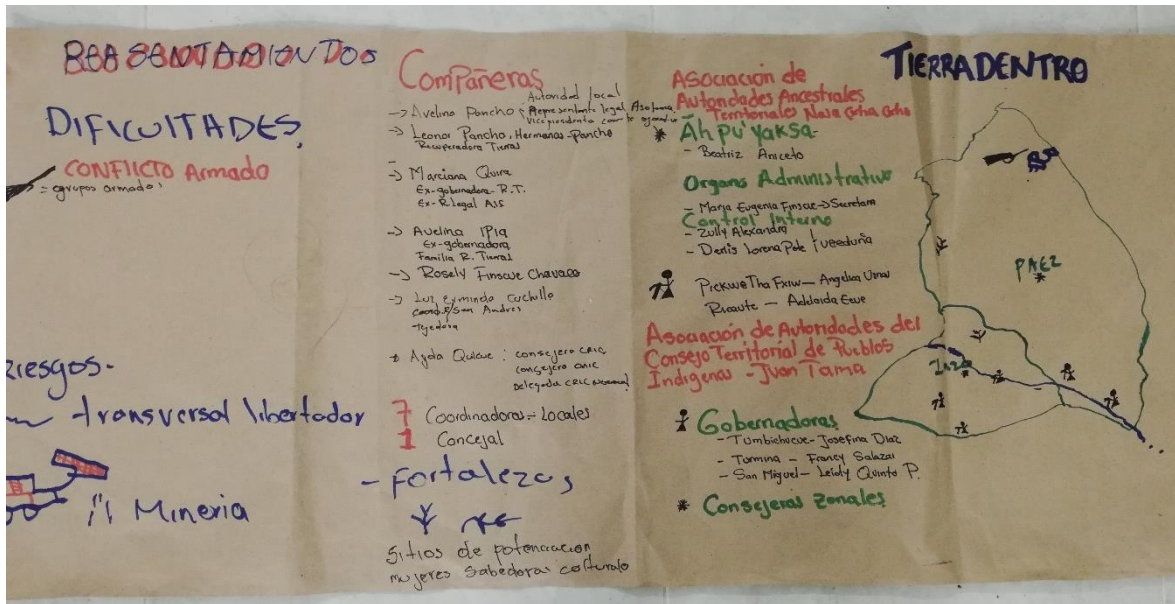 REASENTAMIENTOS
DIFICULTADES,
CONFLICTO Armado
Riesgos.
transversal libertador
Mineria
Compañeras
→ Avelina Pancho: Autoridad local
Representante legal
→ Leonor Pancho, Hermanas-Pancho
Recuperadora Tierras
→ Marciana Quira
Ex-gobernadora- R.T.
Ex-R.legal
→ Avelina IPIA
Ex-gobernadora
Familia R. Tierras
→ Rosely Finscue Chavaco
→ Luz Cuchillo
San Andres
Tejedora
Ayda Quilcue: consejera CRIC
consejera ONIC
Delegada CRIC
7 Coordinadoras-Locales
1 Concejal
- Fortalezas,
Sitios de potenciacion
mujeres Sabedoras
Asociación de
Autoridades Ancestrales
Territoriales Nasa Çxhãçxha
* Ãhpu' yaksa-
- Beatriz Aniceto
Organo Administrativo
- Maria Eugenia Finscue →
Control Interno
- Zully Alexandra
- Denis Lorena Pole
PickweTha Fxiw — Angelica
Ricaurte — Adelaida
Asociación de Autoridades del
Consejo Territorial de Pueblos
Indigenas - Juan Tama
Gobernadoras
- Tumbichucue- Josefina Diaz
- Francy Salazar
- San Miguel- Leidy Quinto P.
* Consejeras Zonales
TIERRADENTRO
PAEZ
INZA